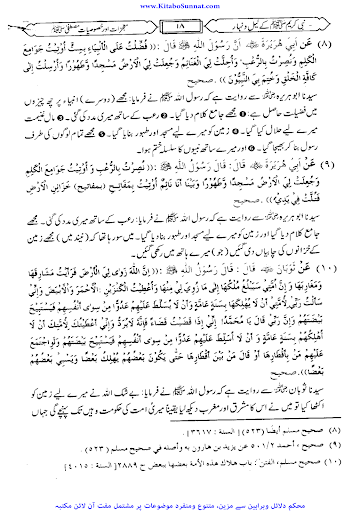 www.KitaboSunnat.com
معجزات اور خصوصیات مصطفیٰ ﷺ ۱۸ نبی کریم ﷺ کے لیل و نہار
(۸) عَنْ أَبِي هُرَيْرَةَ ﷺ أَنَّ رَسُولَ اللهِ ﷺ قَالَ: ((فُضِّلْتُ عَلَى الْأَنْبِيَاءِ بِسِتٍّ أُوتِيْتُ جَوَامِعَ
الْكَلِمِ وَنُصِرْتُ بِالرُّعْبِ، وَأُحِلَّتْ لِيَ الْغَنَائِمُ وَجُعِلَتْ لِيَ الْأَرْضُ مَسْجِدًا وَطَهُوْرًا وَأُرْسِلْتُ إِلَى
الْخَلْقِ كَافَّةً وَخُتِمَ بِيَ النَّبِيُّوْنَ)). صحيح
سیدنا ابو ہریرہ ؓ سے روایت ہے کہ رسول اللہ ﷺ نے فرمایا: مجھے (دوسرے) انبیاء پر چھ چیزوں
میں فضیلت حاصل ہے: ❶ مجھے جامع کلام دیا گیا۔ ❷ رعب کے ساتھ میری مدد کی گئی۔ ❸ مال غنیمت
میرے لیے حلال کیا گیا۔ ❹ زمین کو میرے لیے مسجد اور طہور بنایا گیا۔ ❺ مجھے تمام لوگوں کی طرف
رسول بنا کر بھیجا گیا۔ ❻ اور میرے ساتھ نبیوں کا سلسلہ ختم ہوا۔
(۹) عَنْ أَبِي هُرَيْرَةَ قَالَ: قَالَ رَسُوْلُ اللهِ ﷺ: ((نُصِرْتُ بِالرُّعْبِ وَ أُوْتِيْتُ جَوَامِعَ الْكَلِمِ
وَجُعِلَتْ لِيَ الْأَرْضُ مَسْجِدًا وَطَهُوْرًا وَبَيْنَا أَنَا نَائِمٌ أُتِيْتُ بِمَفَاتِحِ (بمفاتيح) خَزَائِنِ الْأَرْضِ
فَتُلَّتْ فِيْ يَدِيْ)). صحيح
سیدنا ابو ہریرہ ؓ سے روایت ہے کہ رسول اللہ ﷺ نے فرمایا: رعب کے ساتھ میری مدد کی گئی۔ مجھے
جامع کلام دیا گیا اور زمین کو میرے لیے مسجد اور طہور بنایا گیا۔ میں سو رہا تھا کہ (نیند میں) مجھے زمین
کے خزانوں کی چابیاں دی گئیں (جو) میرے ہاتھ میں رکھی گئیں۔
(۱۰) عَنْ ثَوْبَانَ ﷺ قَالَ: قَالَ رَسُوْلُ اللهِ ﷺ: ((إِنَّ اللهَ زَوَى لِيَ الْأَرْضَ فَرَأَيْتُ مَشَارِقَهَا
وَمَغَارِبَهَا وَ إِنَّ أُمَّتِيْ سَيَبْلُغُ مُلْكُهَا إِلَى مَا زُوِيَ لِيْ مِنْهَا وَأُعْطِيْتُ الْكَنْزَيْنِ الْأَحْمَرَ وَالْأَبْيَضَ وَإِنِّيْ
سَأَلْتُ رَبِّيْ لِأُمَّتِيْ أَنْ لَا يُهْلِكَهَا بِسَنَةٍ عَامَّةٍ وَأَنْ لَا يُسَلِّطَ عَلَيْهِمْ عَدُوًّا مِنْ سِوَى أَنْفُسِهِمْ فَيَسْتَبِيْحَ
بَيْضَتَهُمْ وَإِنَّ رَبِّيْ قَالَ: يَا مُحَمَّدُ! إِنِّيْ إِذَا قَضَيْتُ قَضَاءً فَإِنَّهُ لَا يُرَدُّ وَإِنِّيْ أَعْطَيْتُكَ لِأُمَّتِكَ أَنْ لَا
أُهْلِكَهُمْ بِسَنَةٍ عَامَّةٍ وَ أَنْ لَا أُسَلِّطَ عَلَيْهِمْ عَدُوًّا مِنْ سِوَى أَنْفُسِهِمْ يَسْتَبِيْحُ بَيْضَتَهُمْ وَلَوِ اجْتَمَعَ
عَلَيْهِمْ مَنْ بِأَقْطَارِهَا أَوْ قَالَ مَنْ بَيْنَ أَقْطَارِهَا حَتَّى يَكُوْنَ بَعْضُهُمْ يُهْلِكُ بَعْضًا وَيَسْبِيْ بَعْضُهُمْ
بَعْضًا)). صحيح
سیدنا ثوبان ؓ سے روایت ہے کہ رسول اللہ ﷺ نے فرمایا: بے شک اللہ نے میرے لیے زمین کو
اکٹھا کیا تو میں نے اس کا مشرق اور مغرب دیکھ لیا یقیناً میری امت کی حکومت وہیں تک پہنچے گی جہاں
(۸) صحيح مسلم أيضًا (۵۲۳) [السنة: ۳۶۱۷]
(۹) صحيح ، أحمد ۵۰۱/۲ عن يزيد بن هارون به وأصله في صحيح مسلم (۵۲۳)
(۱۰) صحيح مسلم، الفتن، باب هلاك هذه الأمة بعضها ببعض ح ۲۸۸۹ [السنة: ۴۰۱۵]
محکم دلائل وبراہین سے مزین، متنوع ومنفرد موضوعات پر مشتمل مفت آن لائن مکتبہ